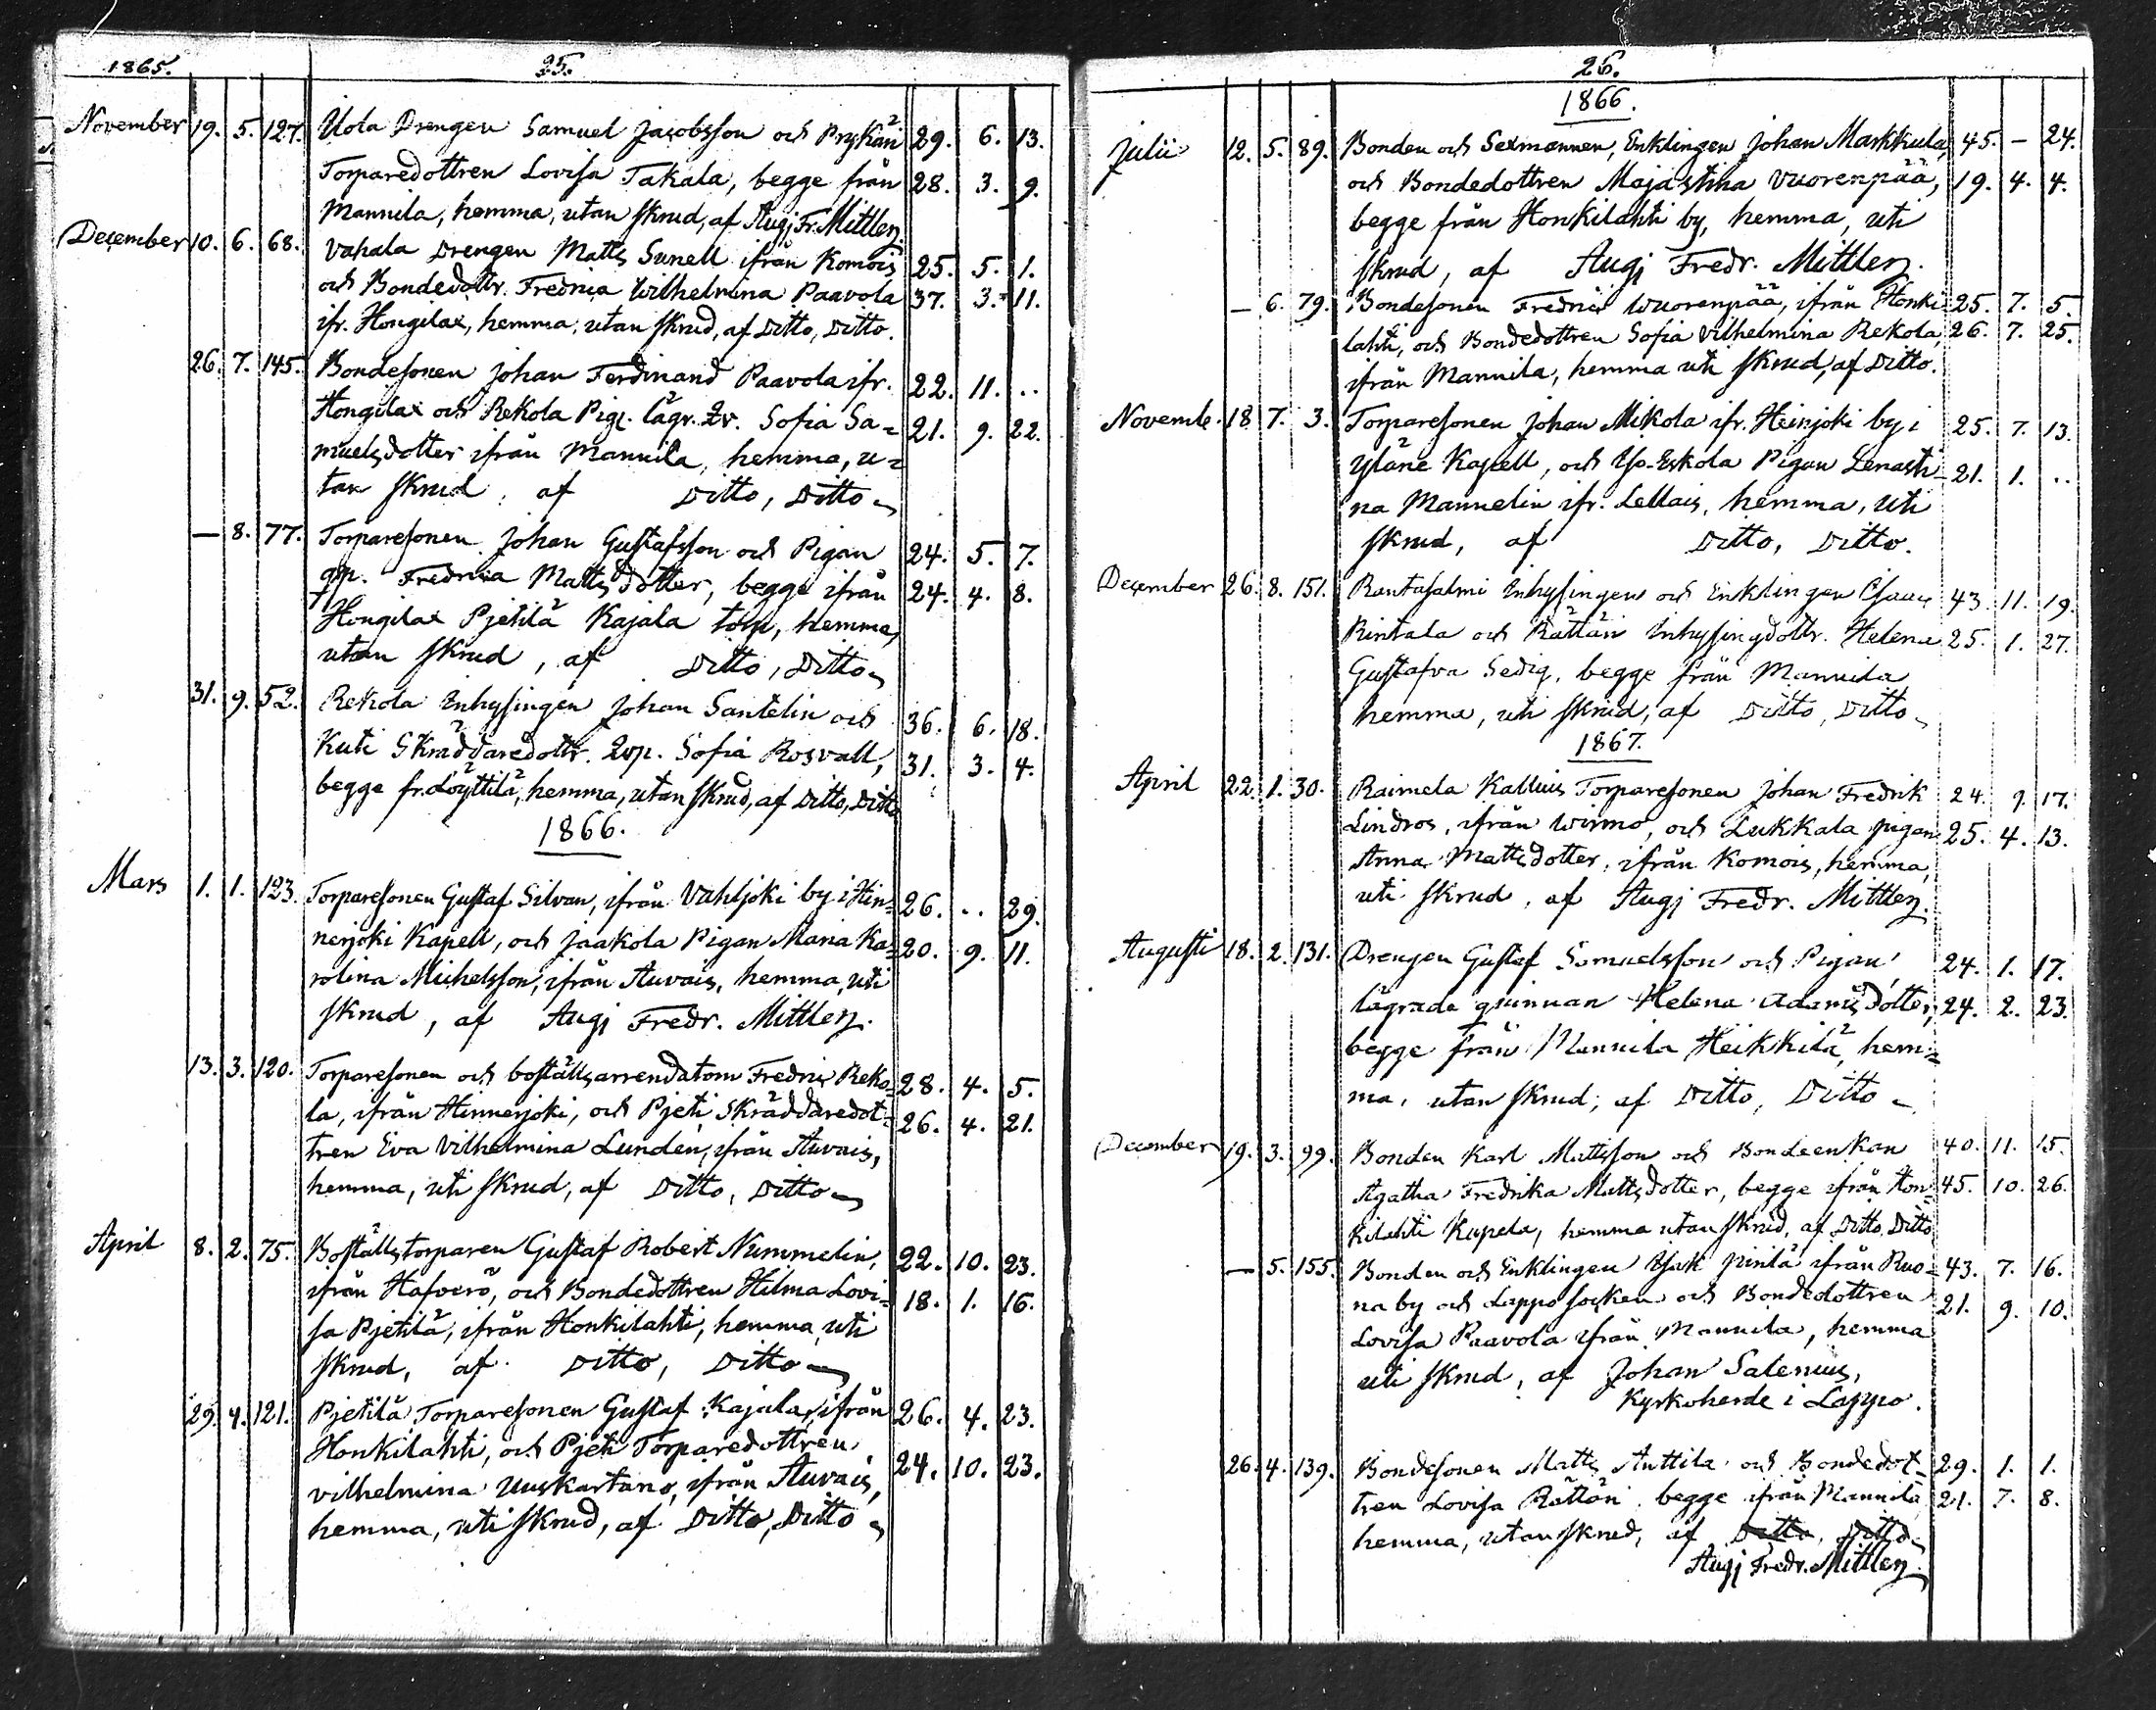 1865. 25.
November 19. 5. 127. Uola Drengen Samuel Jacobsson och Prykäri 29. 6. 13.
Torparedottren Lovisa Takala, begge från 28. 3. 9.
Mannila, hemma, utan skrud, af Augj Fr. Mittler.
December 10. 6. 68. Vahala Drengen Matts Sunell ifrån Komois 25. 5. 1.
och Bondedottr. Fredrica Wilhelmina Paavola 37. 3. 11.
ifr. Hongilax, hemma, utan skrud, af Ditto, Ditto.
26. 7. 145. Bondesonen Johan Ferdinand Paavola ifr. 22. 11. ..
Hongilax och Rekola Pig. lägr. Qv. Sofia Sa= 21. 9. 22.
muelsdotter ifrån Mannila, hemma, u=
tan skrud, af Ditto, Ditto
— 8. 77. Torparesonen Johan Gustafsson och Pigan 24. 5. 7.
Fredrica Mattsdotter, begge ifrån 24. 4. 8.
Hongilax Pjetilä Kajala torp, hemma,
utan skrud, af Ditto, Ditto
31. 9. 52. Rekola Inhysingen Johan Santelin och 36. 6. 18.
Kuti Skräddaredottr. Qvp. Sofia Rosvall, 31. 3. 4.
begge fr. Löyttilä, hemma, utan skrud, af Ditto, Ditto
1866.
Mars 1. 1. 123. Torparesonen Gustaf Silvan, ifrån Vahljoki by i Hin= 26. .. 29.
nerjoki Kapell, och Jaakola Pigan Maria Ka= 20. 9. 11.
rolina Michelsson, ifrån Auvais, hemma, uti
skrud, af Augj Fredr. Mittler.
13. 3. 120. Torparesonen och boställsarrendatorn Fredric Reko= 28. 4. 5.
la, ifrån Hinnerjoki, och Pjeti Skräddaredot= 26. 4. 21.
tren Eva Vilhelmina Lunden, ifrån Auvais,
hemma, uti skrud, af Ditto, Ditto
April 8. 2. 75. Boställstorparen Gustaf Robert Nummelin, 22. 10. 23.
ifrån Hafverö, och Bondedottren Hilma Lovi= 18. 1. 16.
sa Pjetilä, ifrån Honkilahti, hemma, uti
skrud, af Ditto, Ditto
29. 4. 121. Pjetilä Torparesonen Gustaf Kajala, ifrån 26. 4. 23.
Honkilahti, och Pjeti Torparedottren
Vilhelmina Uuskartano, ifrån Auvais, 24. 10. 23.
hemma, uti skrud, af Ditto, Ditto
26.
1866.
Julii 12. 5. 89. Bonden och Sexmannen, Enklingen Johan Markkula, 45. — 24.
och Bondedottren Majastina Vuorenpää, 19. 4. 4.
begge från Honkilahti by, hemma, uti
skrud, af Augj Fredr. Mittler.
— 6. 79. Bondesonen Fredric Wuorenpää, ifrån Honki= 25. 7. 5.
lahti, och Bondedottren Sofia Vilhelmina Rekola, 26. 7. 25.
ifrån Mannila, hemma uti skrud, af Ditto.
Novemb. 18 7. 3. Torparesonen Johan Mikola ifr. Heinjoki by i 25. 7. 13.
Yläne Kapell, och Yso-Eskola Pigan Lenasti= 21. 1. ..
na Mannelin ifr. Lellais, hemma, uti
skrud, af Ditto, Ditto.
December 26. 8. 151. Rantasalmi Inhysingen och Enklingen Isaac 43. 11. 19.
Rintala och Rättäri Inhysingsdottr. Helena 25. 1. 27.
Gustafva Sedig, begge från Mannila
hemma, uti skrud, af Ditto, Ditto
1867.
April 22. 1. 30. Raimela Kalluis Torparesonen Johan Fredrik 24. 9. 17.
Lindros, ifrån Wirmo, och Lukkala pigan 25. 4. 13.
Anna Mattsdotter, ifrån Komois, hemma,
uti skrud, af Augj Fredr. Mittler.
Augusti 18. 2. 131. Drengen Gustaf Samuelsson och Pigan, 24. 1. 17.
lägrade qvinnan Helena Adamsdotter, 24. 2. 23.
begge från Mannila Heikkilä, hem=
ma, utan skrud, af Ditto, Ditto
December 19. 3. 99. Bonden Karl Mattsson och Bondeenkan 40. 11. 15.
Agatha Fredrika Mattsdotter, begge ifrån Hon= 45. 10. 26.
kilahti Kapela, hemma utan skrud, af Ditto, Ditto
— 5. 155. Bonden och Enklingen Isak Pirilä ifrån Ruo= 43. 7. 16.
na by och Lappo socken och Bondedottren 21. 9. 10.
Lovisa Paavola ifrån Mannila, hemma
uti skrud, af Johan Salenius,
Kyrkoherde i Lappo.
26. 4. 139. Bondesonen Matts Anttila och Bondedot= 29. 1. 1.
tren Lovisa Rättäri, begge ifrån Mannila 21. 7. 8.
hemma, utan skrud, af Ditto, Ditto
Augj Fredr. Mittler